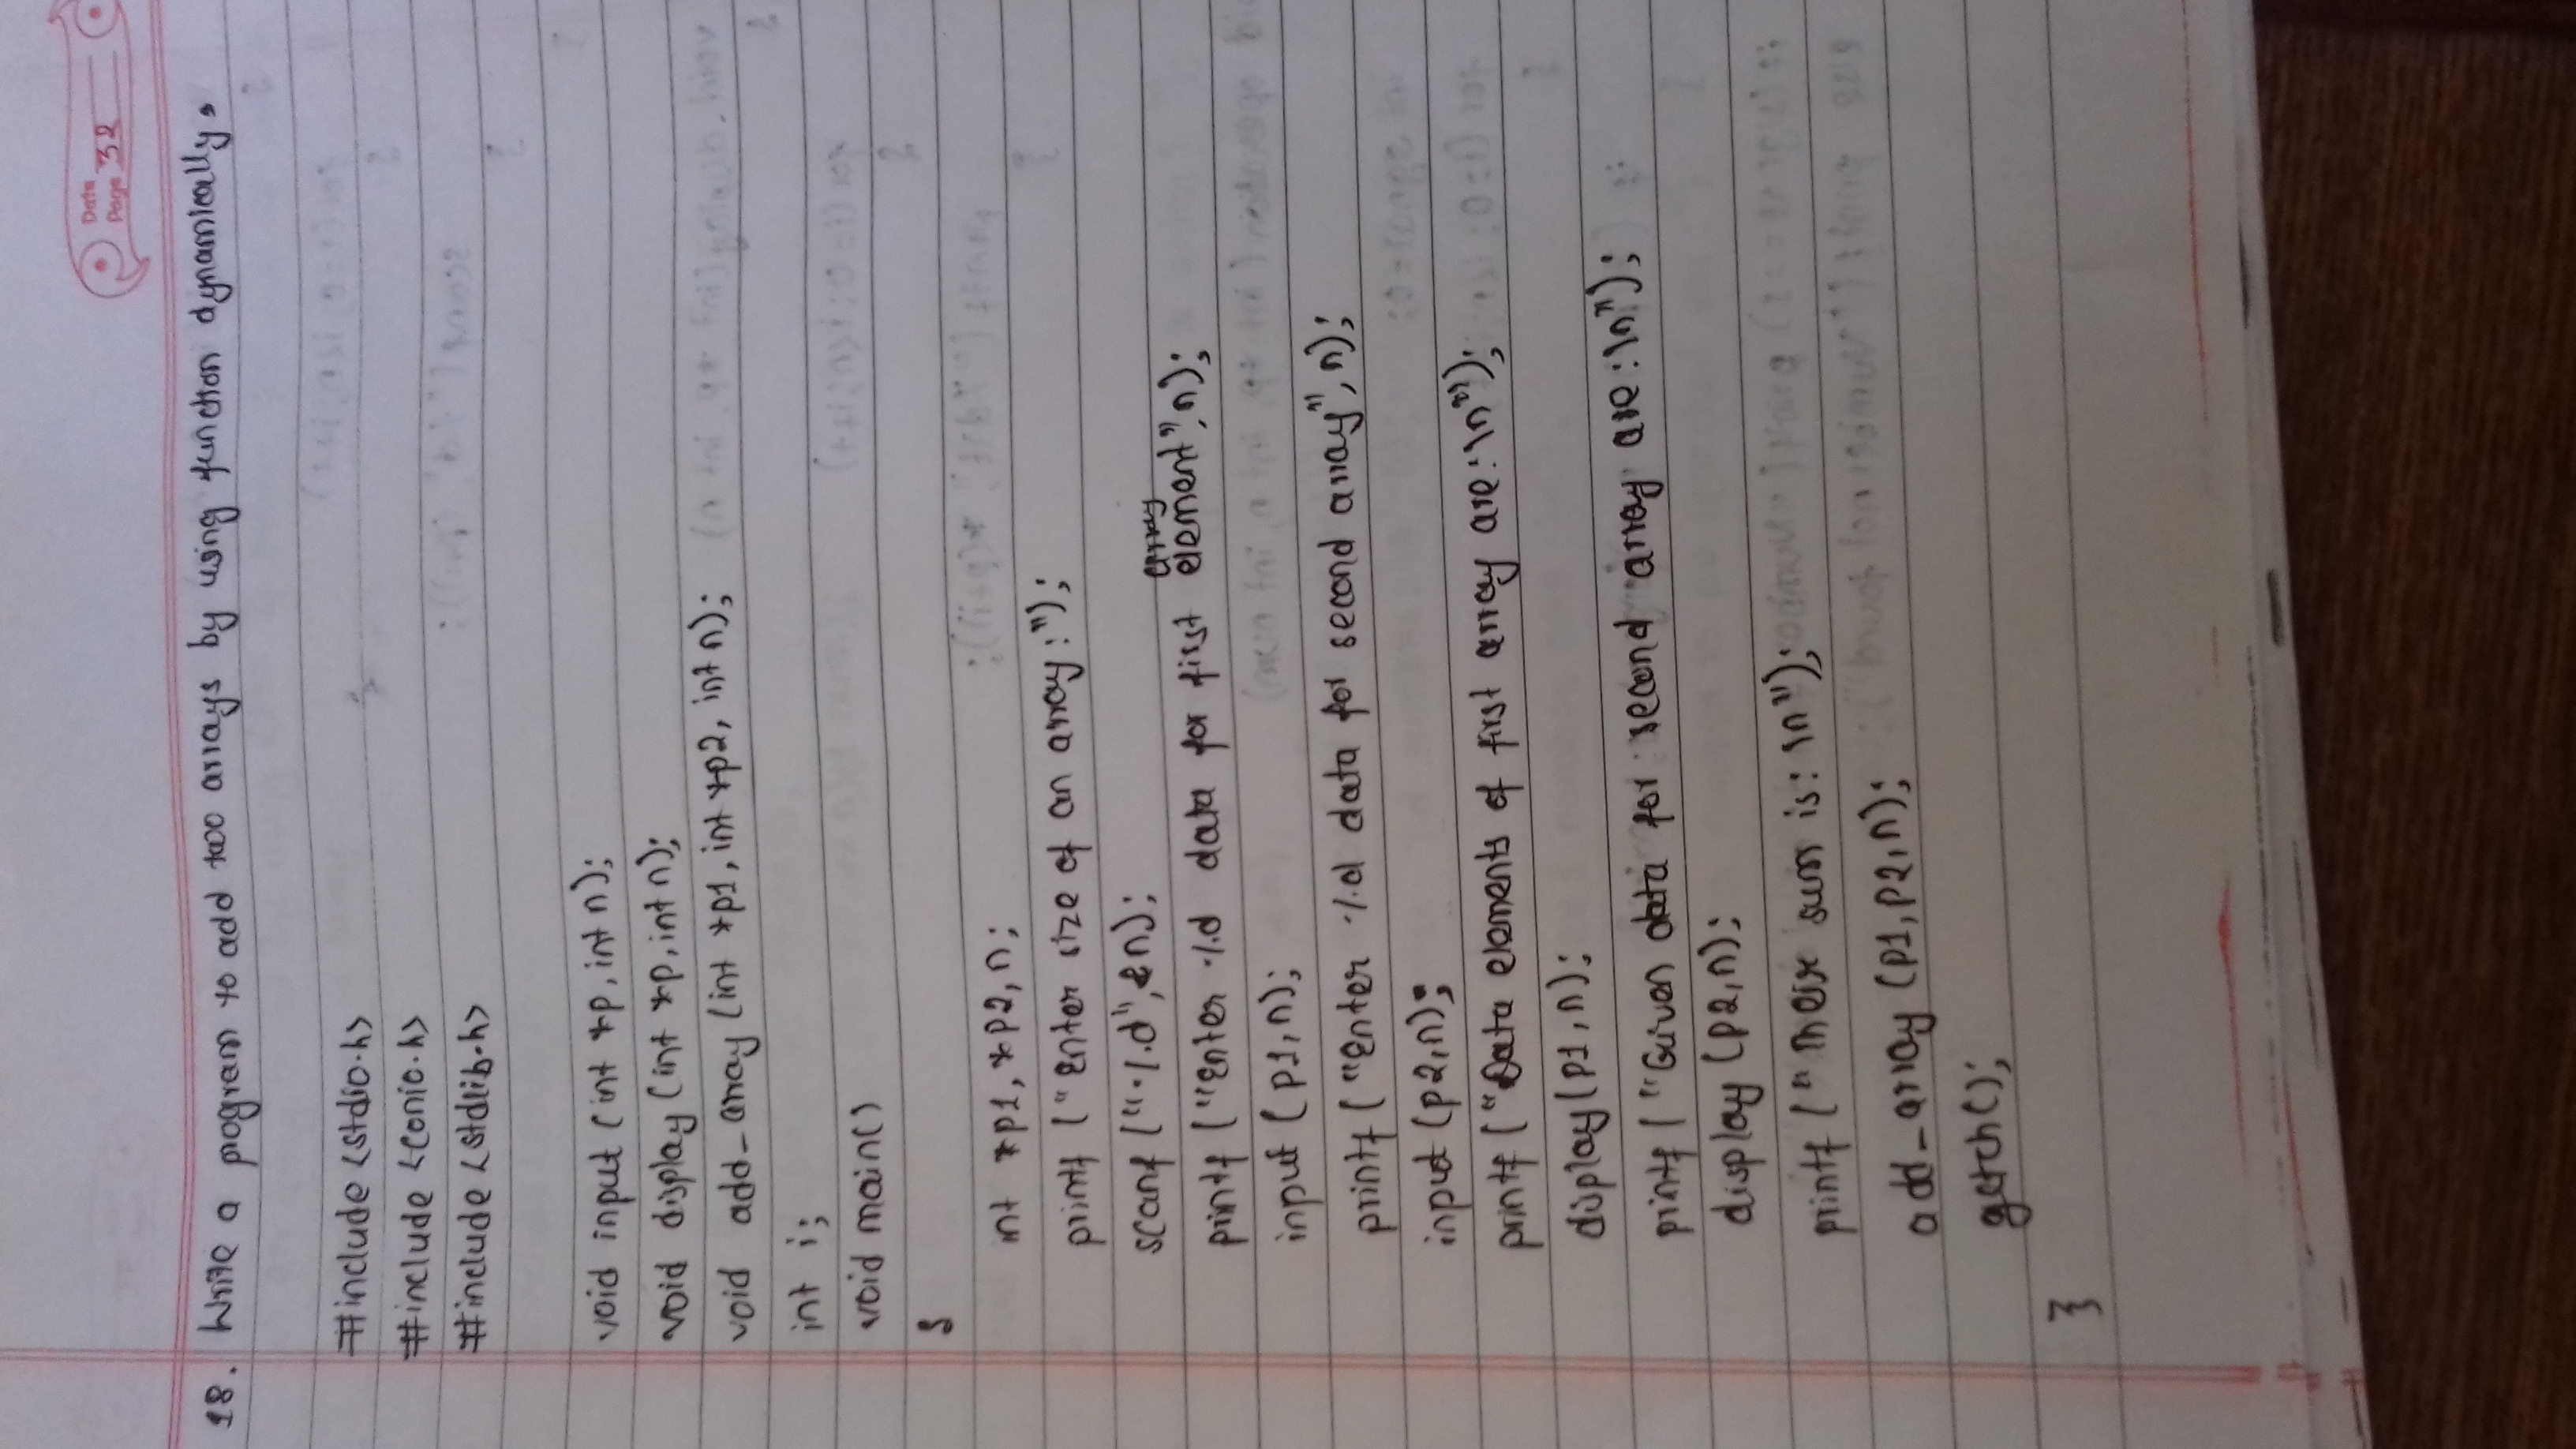 Date
Page 32
18. Write a program to add two arrays by using function dynamically.
#include <stdio.h>
#include <conio.h>
#include <stdlib.h>
void input (int *p, int n);
void display (int *p, int n);
void add_array (int *p1, int *p2, int n);
int i;
void main()
{
int *p1, *p2, n;
printf ("Enter size of an array:");
scanf ("%d", &n);
array
printf ("Enter %d data for first element", n);
input (p1, n);
printf ("Enter %d data for second array", n);
input (p2, n);
printf ("Data elements of first array are:\n");
display (p1, n);
printf ("Given data for second array are:\n");
display (p2, n);
printf ("Their sum is: \n");
add_array (p1, p2, n);
getch();
}